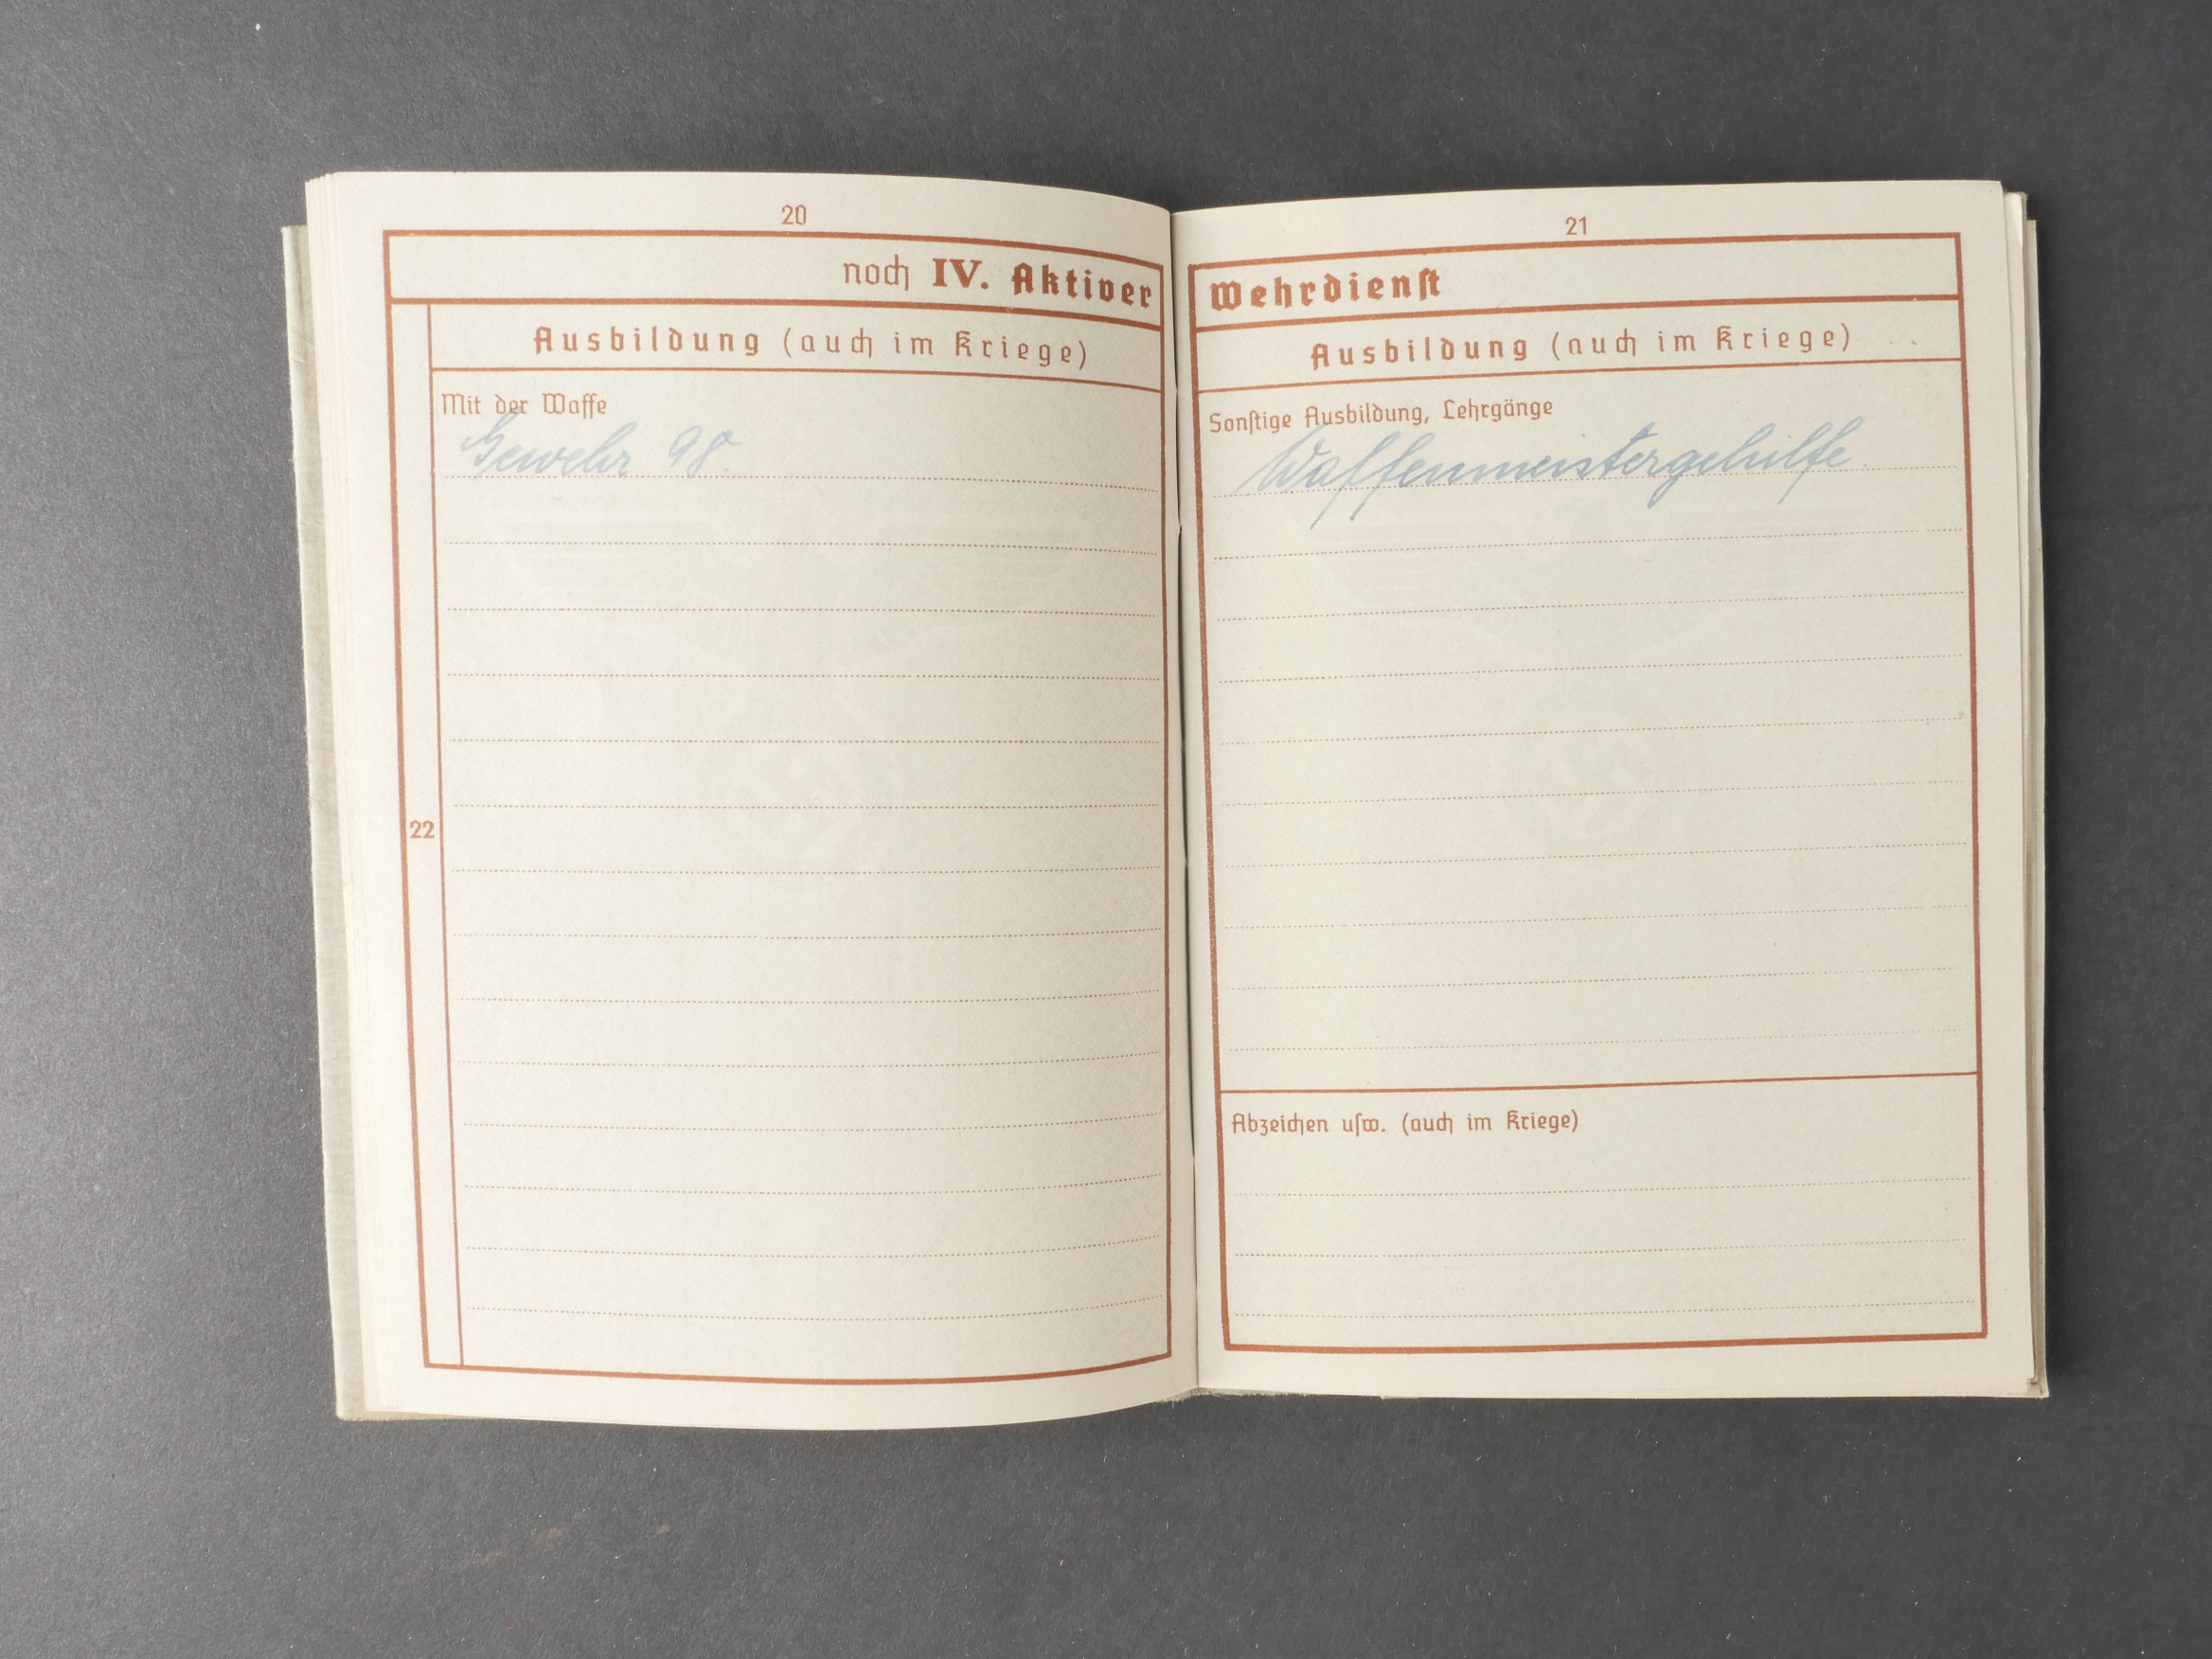 20
noch IV. Aktiver
Ausbildung (auch im Kriege)
Mit der Waffe
Gewehr 98.
22
21
Wehrdienſt
Ausbildung (auch im Kriege)
Sonſtige Ausbildung, Lehrgänge
Waffenmeistergehilfe
Abzeichen uſw. (auch im Kriege)